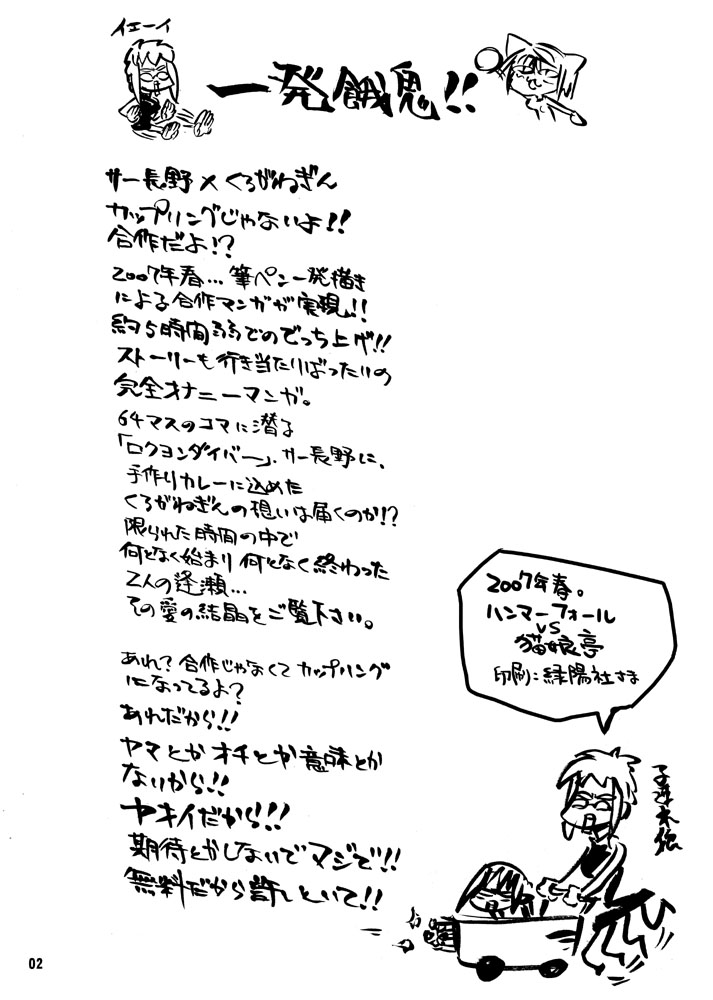 イエーイ
一発餓鬼!!
サー長野×くろがねぎん
カップリングじゃないよ!!
合作だよ!?
2007年春…筆ペン一発描き
による合作マンガが実現!!
約5時間弱でのでっち上げ!!
ストーリーも行き当たりばったりの
完全オナニーマンガ。
64マスのコマに潜る
「ロクヨンダイバー」、サー長野に、
手作りカレーに込めた
くろがねぎんの想いは届くのか!?
限られた時間の中で
何となく始まり何となく終わった
2人の逢瀬…
その愛の結晶をご覧下さい。
あれ?合作じゃなくてカップリング
になってるよ?
あれだから!!
ヤマとかオチとか意味とか
ないから!!
ヤキイだから!!
期待とかしないでマジで!!
無料だから許しといて!!
2007年春。
ハンマーフォール
VS
猫娘亭
印刷:緑陽社さま
子連れ狼
02